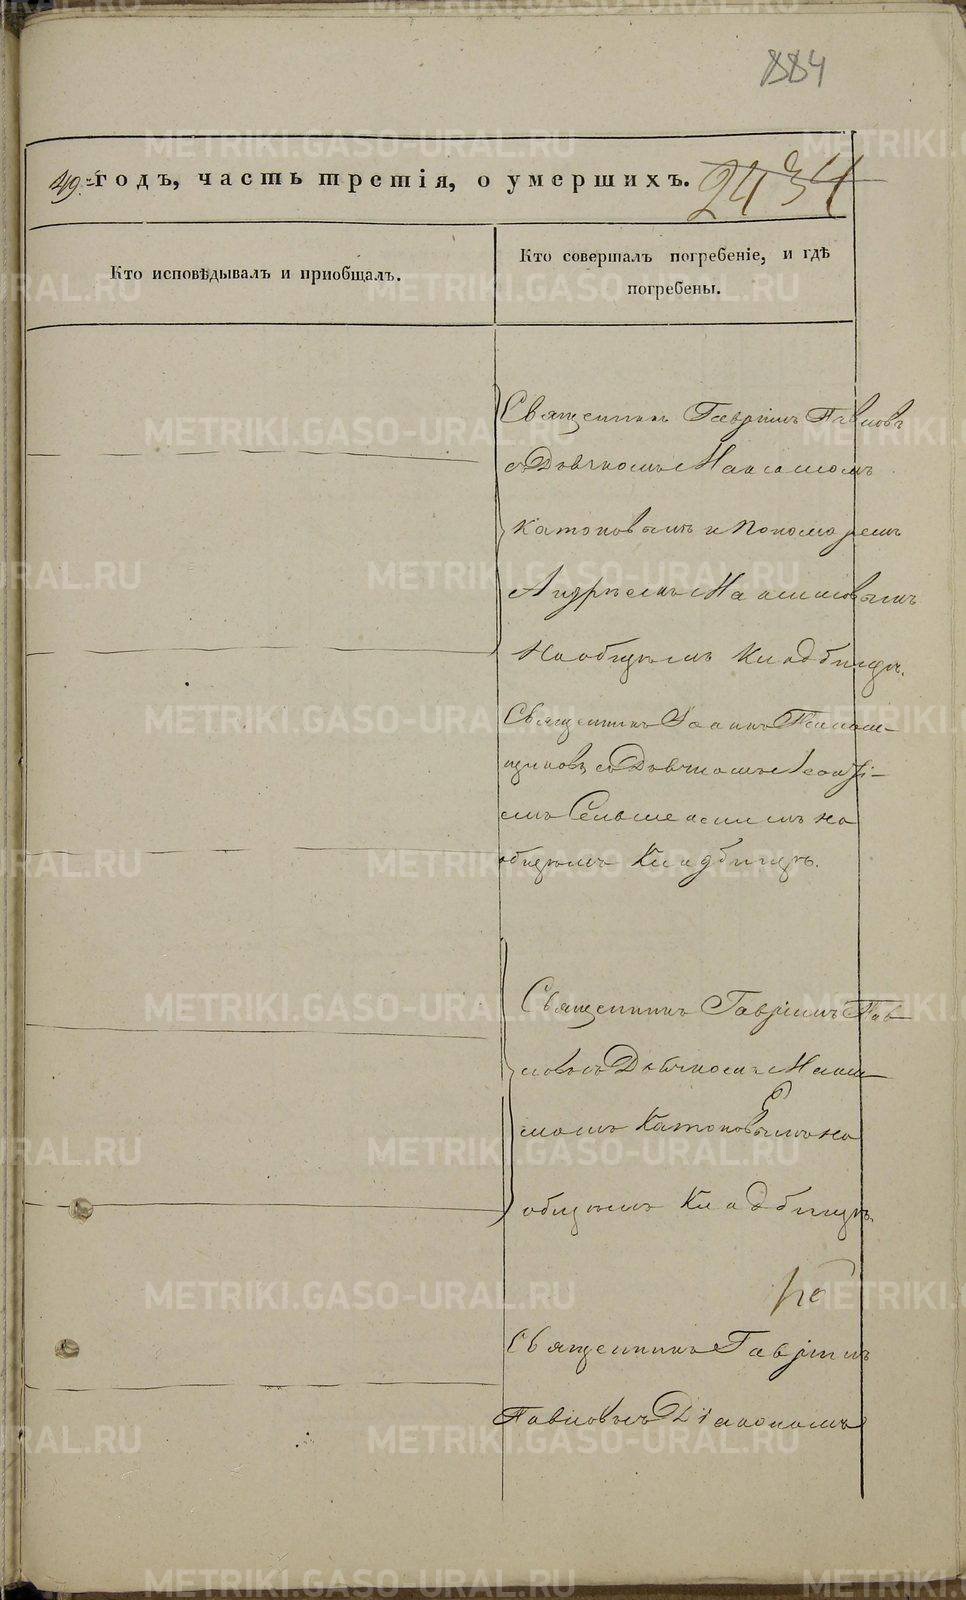 884
49 годъ, часть третія, о умершихъ.
2434
Кто исповѣдывалъ и приобщалъ.
Кто совершалъ погребеніе, и гдѣ
погребены.
Священникъ Гавріилъ Павловъ
съ Дьячкомъ Максимомъ
Катоновымъ и Пономаремъ
Андреемъ Максимовымъ
на общемъ Кладбищѣ.
Священникъ Іоаннъ
съ Дьячкомъ
на
общемъ Кладбищѣ.
Священникъ Гавріилъ Пав
ловъ съ Дьячкомъ Макси
момъ Катоновымъ на
общемъ Кладбищѣ.
Священникъ Гавріилъ
Павловъ съ Діакономъ
METRIKI.GASO-URAL.RU